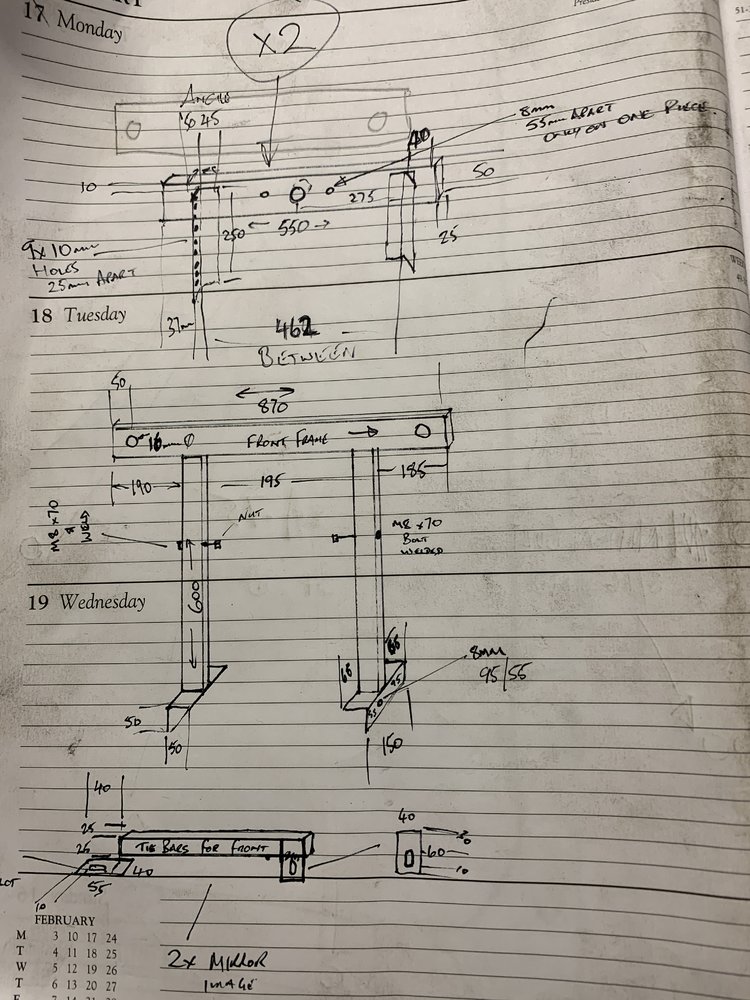 17 Monday
x2
ANGLE
45
8mm
55mm APART
ONLY ON ONE PIECE
40
10
50
275
250
550
25
9x10mm
HOLES
25mm APART
18 Tuesday
37m
462
BETWEEN
50
870
16mm Ø
FRONT FRAME
190
195
185
M8 x70
&
WELD
NUT
M8 x70
BOLT
WELDED
600
19 Wednesday
65
8mm
95/55
95
55
50
50
150
40
25
40
25
TIE BARS FOR FRONT
60
10
40
55
10
FEBRUARY
M 3 10 17 24
T 4 11 18 25
W 5 12 19 26
T 6 13 20 27
2x MIRROR
IMAGE